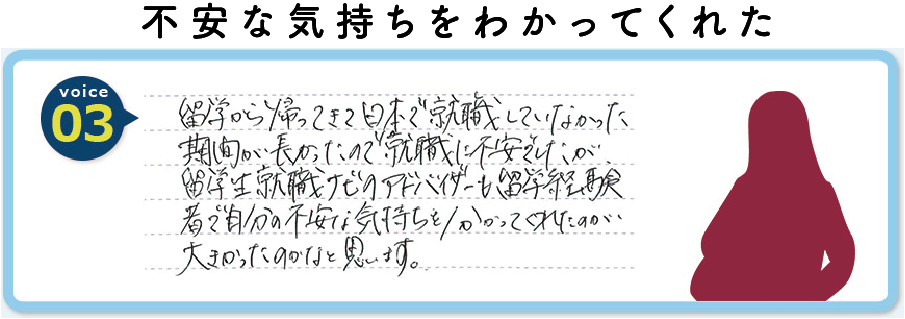 不安な気持ちをわかってくれた
voice
03
留学から帰ってきて日本で就職していなかった
期間が長かったので就職に不安でしたが、
留学生就職ナビのアドバイザーも留学経験
者で自分の不安な気持ちを分かってくれたのが
大きかったのかなと思います。